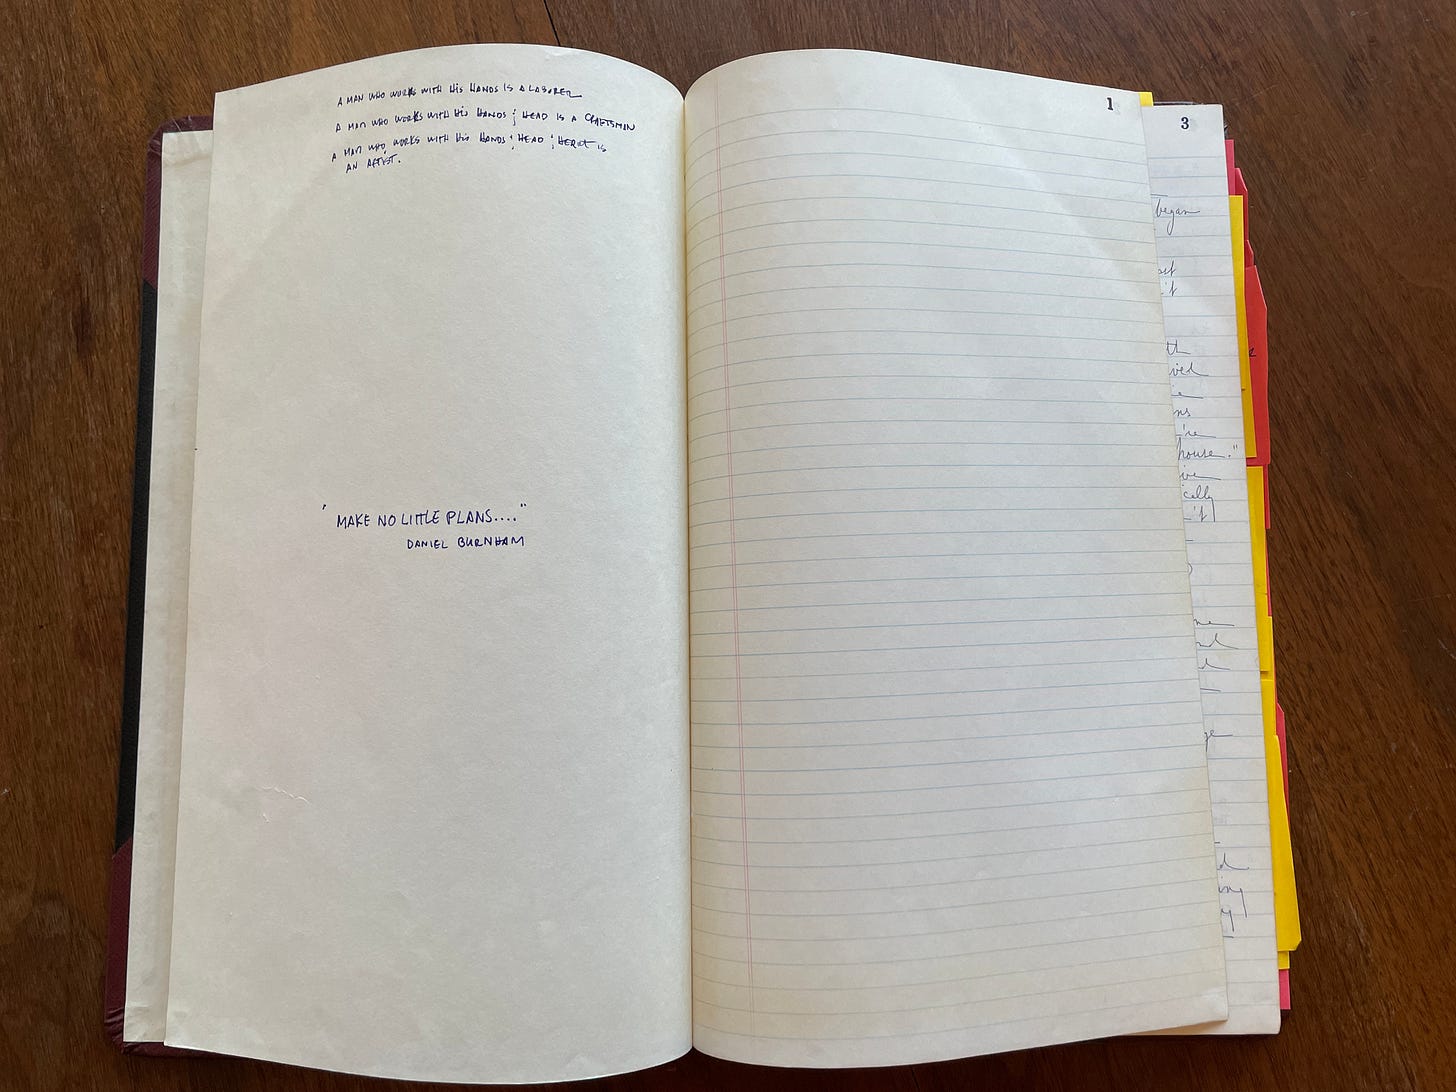 A MAN WHO WORKS WITH HIS HANDS IS A LABORER
A MAN WHO WORKS WITH HIS HANDS & HEAD IS A CRAFTSMAN
A MAN WHO WORKS WITH HIS HANDS & HEAD & HEART IS
AN ARTIST.
"MAKE NO LITTLE PLANS...."
DANIEL BURNHAM
1
3
began
house."